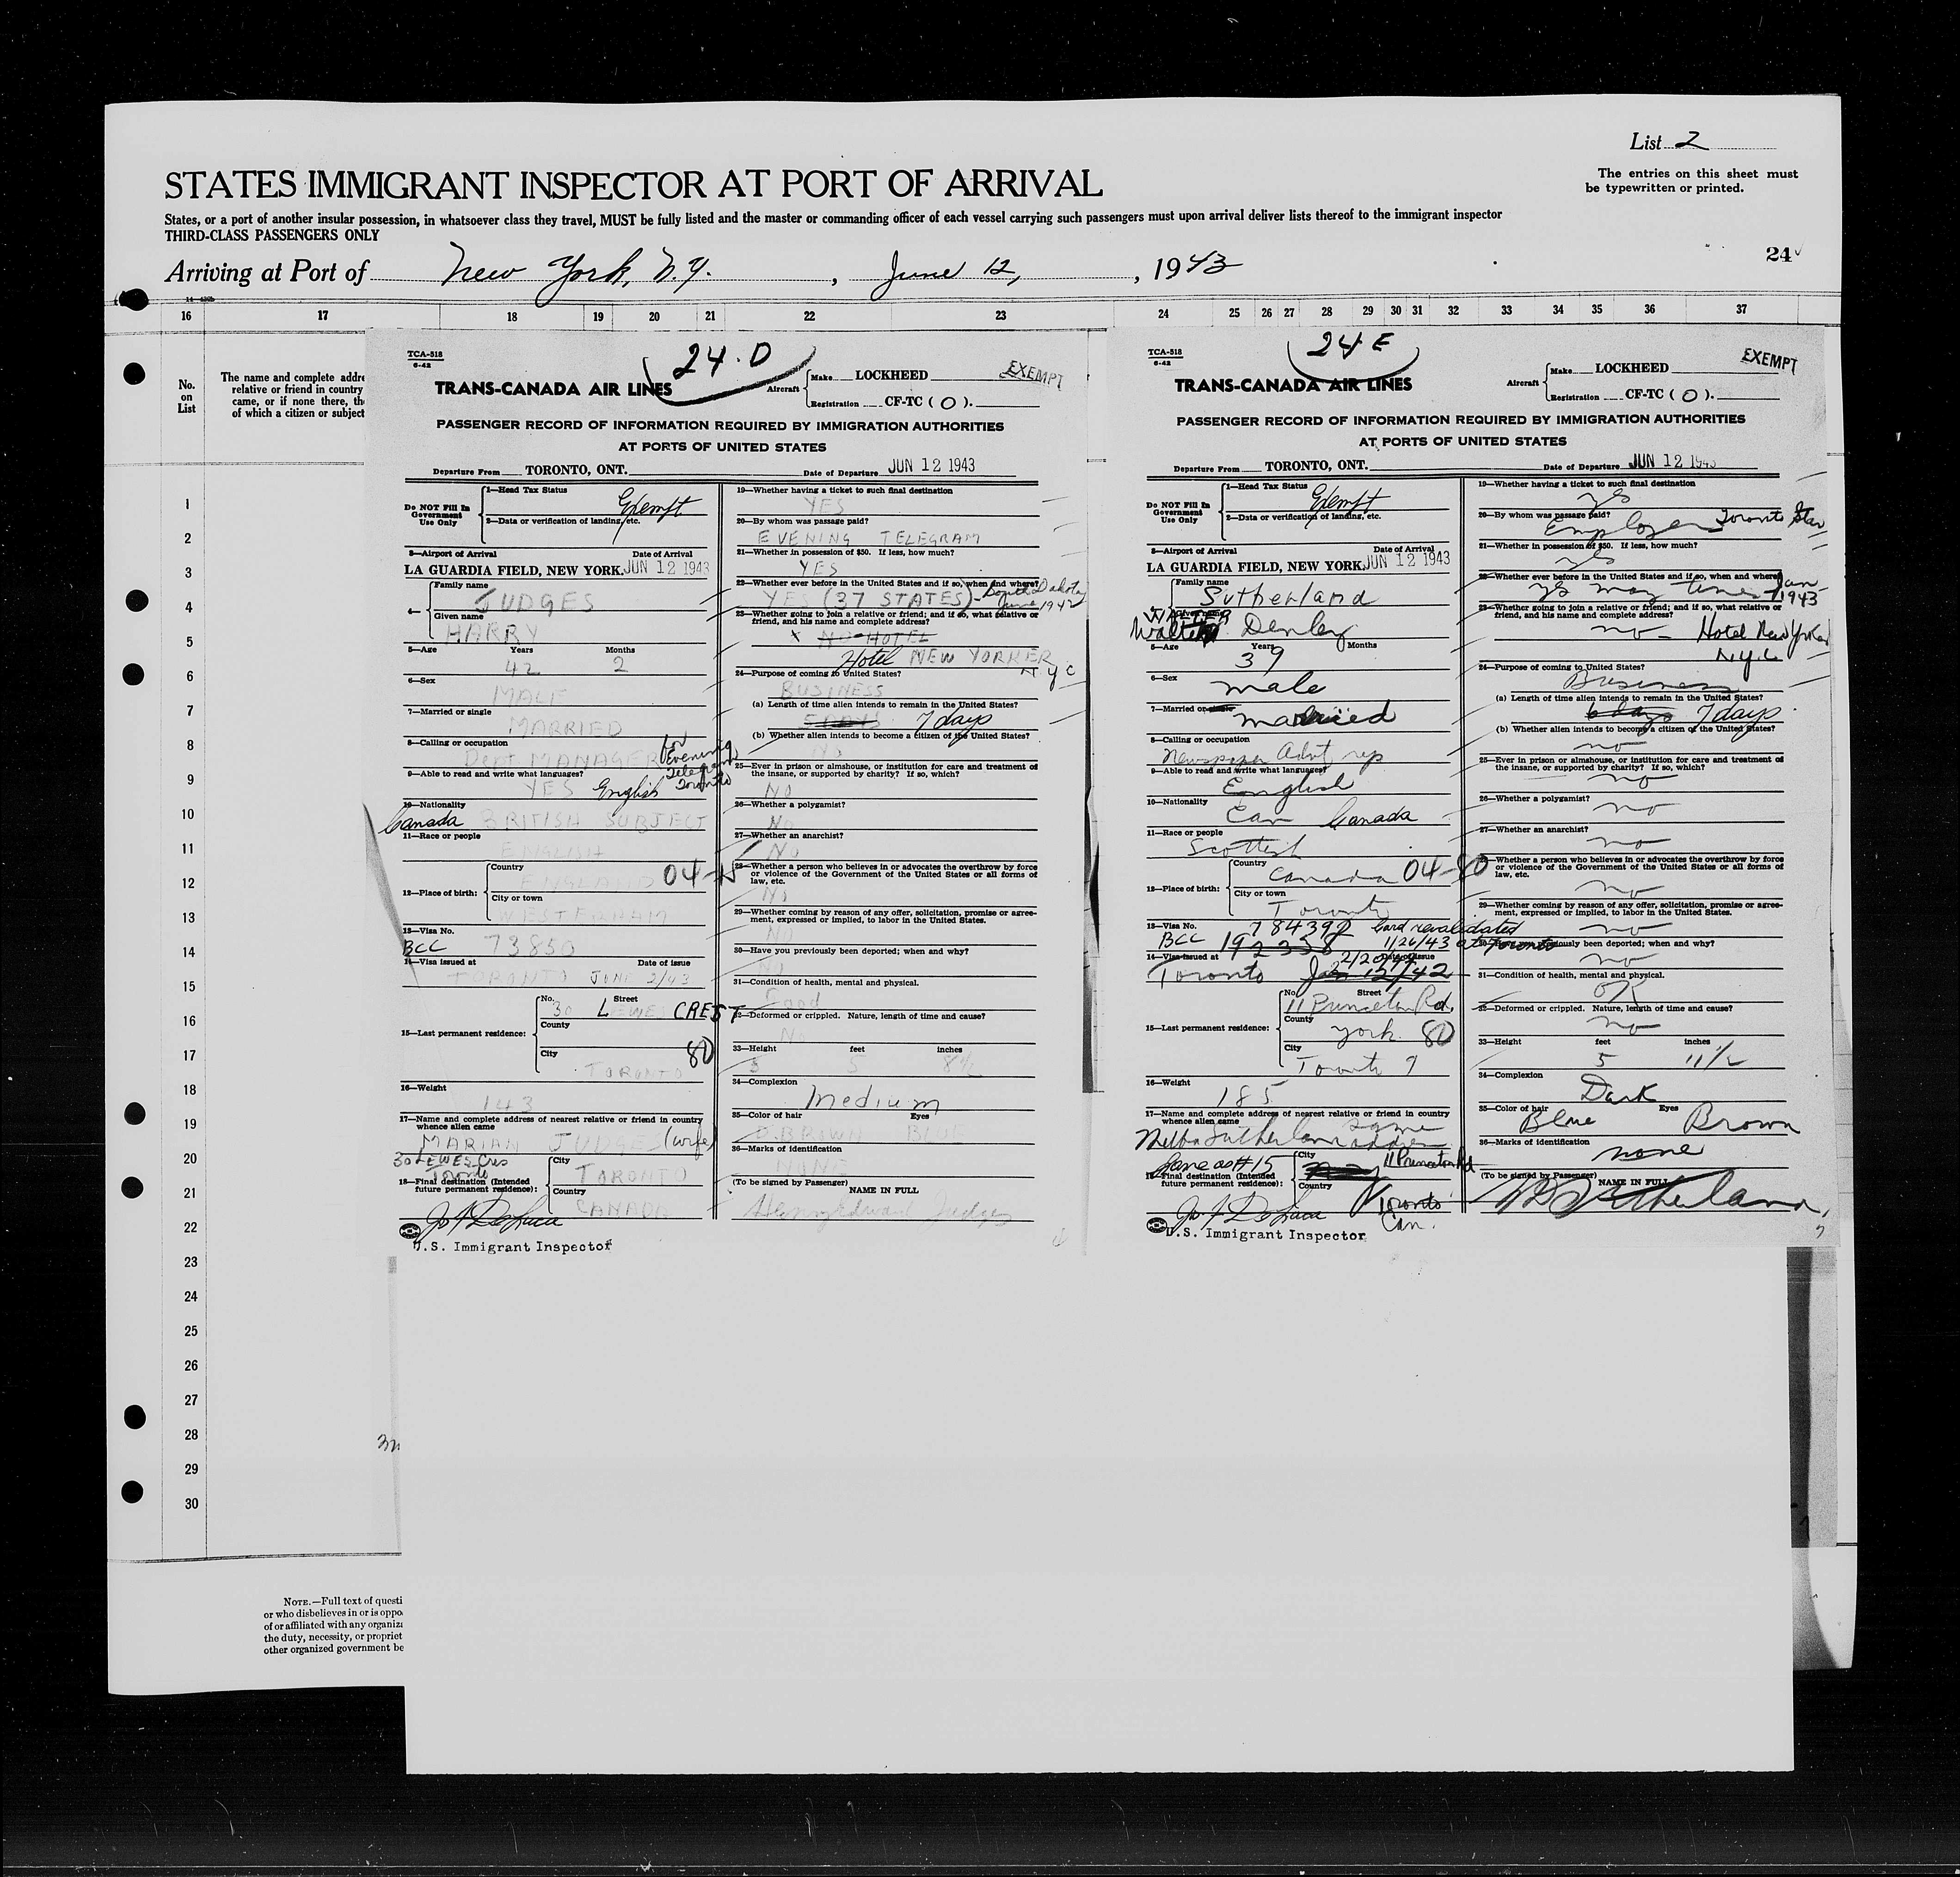 List 2
The entries on this sheet must
be typewritten or printed.
STATES IMMIGRANT INSPECTOR AT PORT OF ARRIVAL
States, or a port of another insular possession, in whatsoever class they travel, MUST be fully listed and the master or commanding officer of each vessel carrying such passengers must upon arrival deliver lists thereof to the immigrant inspector
THIRD-CLASS PASSENGERS ONLY
24
Arriving at Port of New York, N.Y. , June 12, , 1943
16 17 18 19 20 21 22 23 24 25 26 27 28 29 30 31 32 33 34 35 36 37
No.
on
List
The name and complete addre
relative or friend in country
came, or if none there, th
of which a citizen or subject
1
2
3
4
5
6
7
8
9
10
11
12
13
14
15
16
17
18
19
20
21
22
23
24
25
26
27
28
29
30
NOTE.—Full text of questi
or who disbelieves in or is oppo
of or affiliated with any organiza
the duty, necessity, or propriet
other organized government be
TCA-518
6-42
24.D
EXEMPT
TRANS-CANADA AIR LINES
Aircraft Make LOCKHEED
Registration CF-TC ( O ).
PASSENGER RECORD OF INFORMATION REQUIRED BY IMMIGRATION AUTHORITIES
AT PORTS OF UNITED STATES
Departure From TORONTO, ONT. Date of Departure JUN 12 1943
Do NOT Fill In
Government
Use Only
1—Head Tax Status
Exempt
2—Data or verification of landing, etc.
3—Airport of Arrival Date of Arrival
LA GUARDIA FIELD, NEW YORK. JUN 12 1943
4— Family name
JUDGES
Given name
HARRY
5—Age Years Months
42 2
6—Sex
MALE
7—Married or single
MARRIED
8—Calling or occupation
Dept MANAGER for Evening Telegram Toronto
9—Able to read and write what languages?
YES English
10—Nationality
Canada BRITISH SUBJECT
11—Race or people
ENGLISH
12—Place of birth: Country
ENGLAND 04-
City or town
WESTERHAM
13—Visa No.
BCC 73850
14—Visa issued at Date of issue
TORONTO JUNE 2/43
15—Last permanent residence: No. Street
30 LEWES CREST
County
City 80
TORONTO
16—Weight
143
17—Name and complete address of nearest relative or friend in country
whence alien came
MARIAN JUDGES (wife)
30 LEWES Cres
Toronto
18—Final destination (Intended
future permanent residence):
City
TORONTO
Country
CANADA
Jos F DeLuca
U.S. Immigrant Inspector
19—Whether having a ticket to such final destination
YES
20—By whom was passage paid?
EVENING TELEGRAM
21—Whether in possession of $50. If less, how much?
YES
22—Whether ever before in the United States and if so, when and where?
YES (37 STATES) - South Dakota June 1942
23—Whether going to join a relative or friend; and if so, what relative or
friend, and his name and complete address?
X NO HOTEL
Hotel NEW YORKER
N.Y.C
24—Purpose of coming to United States?
BUSINESS
(a) Length of time alien intends to remain in the United States?
7 days
(b) Whether alien intends to become a citizen of the United States?
NO
25—Ever in prison or almshouse, or institution for care and treatment of
the insane, or supported by charity? If so, which?
NO
26—Whether a polygamist?
NO
27—Whether an anarchist?
NO
28—Whether a person who believes in or advocates the overthrow by force
or violence of the Government of the United States or all forms of
law, etc.
NO
29—Whether coming by reason of any offer, solicitation, promise or agree-
ment, expressed or implied, to labor in the United States.
NO
30—Have you previously been deported; when and why?
NO
31—Condition of health, mental and physical.
Good
32—Deformed or crippled. Nature, length of time and cause?
No
33—Height feet inches
5 8½
34—Complexion
Medium
35—Color of hair Eyes
D.BROWN BLUE
36—Marks of identification
NONE
(To be signed by Passenger) NAME IN FULL
Judges
TCA-518
6-42
24 E
EXEMPT
TRANS-CANADA AIR LINES
Aircraft Make LOCKHEED
Registration CF-TC ( O ).
PASSENGER RECORD OF INFORMATION REQUIRED BY IMMIGRATION AUTHORITIES
AT PORTS OF UNITED STATES
Departure From TORONTO, ONT. Date of Departure JUN 12 1943
Do NOT Fill In
Government
Use Only
1—Head Tax Status
Exempt
2—Data or verification of landing, etc.
3—Airport of Arrival Date of Arrival
LA GUARDIA FIELD, NEW YORK. JUN 12 1943
Family name
Sutherland
WALTER
Walter Denley
5—Age Years Months
39
6—Sex
male
7—Married or single
married
8—Calling or occupation
Newspaper Advt rep
9—Able to read and write what languages?
English
10—Nationality
Can Canada
11—Race or people
Scottish
12—Place of birth: Country
Canada 04-80
City or town
Toronto
13—Visa No. 784392 Card revalidated
BCC 192358 1/26/43 at Toronto
14—Visa issued at Date of issue
Toronto Jan 12/42
15—Last permanent residence: No. Street
11 Princeton Rd.
County
York 80
City
Toronto 9
16—Weight
185
17—Name and complete address of nearest relative or friend in country
whence alien came
Melba Sutherland same address
Same as #15
18—Final destination (Intended
future permanent residence):
City 11 Princeton Rd
Country
Toronto
Can.
Jos F DeLuca
U.S. Immigrant Inspector
19—Whether having a ticket to such final destination
yes
20—By whom was passage paid?
Employer Toronto Star
21—Whether in possession of $50. If less, how much?
yes
22—Whether ever before in the United States and if so, when and where?
yes many times Jan 1943
23—Whether going to join a relative or friend; and if so, what relative or
friend, and his name and complete address?
no - Hotel New Yorker
N.Y.C
24—Purpose of coming to United States?
Business
(a) Length of time alien intends to remain in the United States?
6 days 7 days
(b) Whether alien intends to become a citizen of the United States?
no
25—Ever in prison or almshouse, or institution for care and treatment of
the insane, or supported by charity? If so, which?
no
26—Whether a polygamist?
no
27—Whether an anarchist?
no
28—Whether a person who believes in or advocates the overthrow by force
or violence of the Government of the United States or all forms of
law, etc.
no
29—Whether coming by reason of any offer, solicitation, promise or agree-
ment, expressed or implied, to labor in the United States.
no
30—Have you previously been deported; when and why?
no
31—Condition of health, mental and physical.
OK
32—Deformed or crippled. Nature, length of time and cause?
no
33—Height feet inches
5 11½
34—Complexion
Dark
35—Color of hair Eyes
Blue Brown
36—Marks of identification
none
(To be signed by Passenger) NAME IN FULL
WD Sutherland